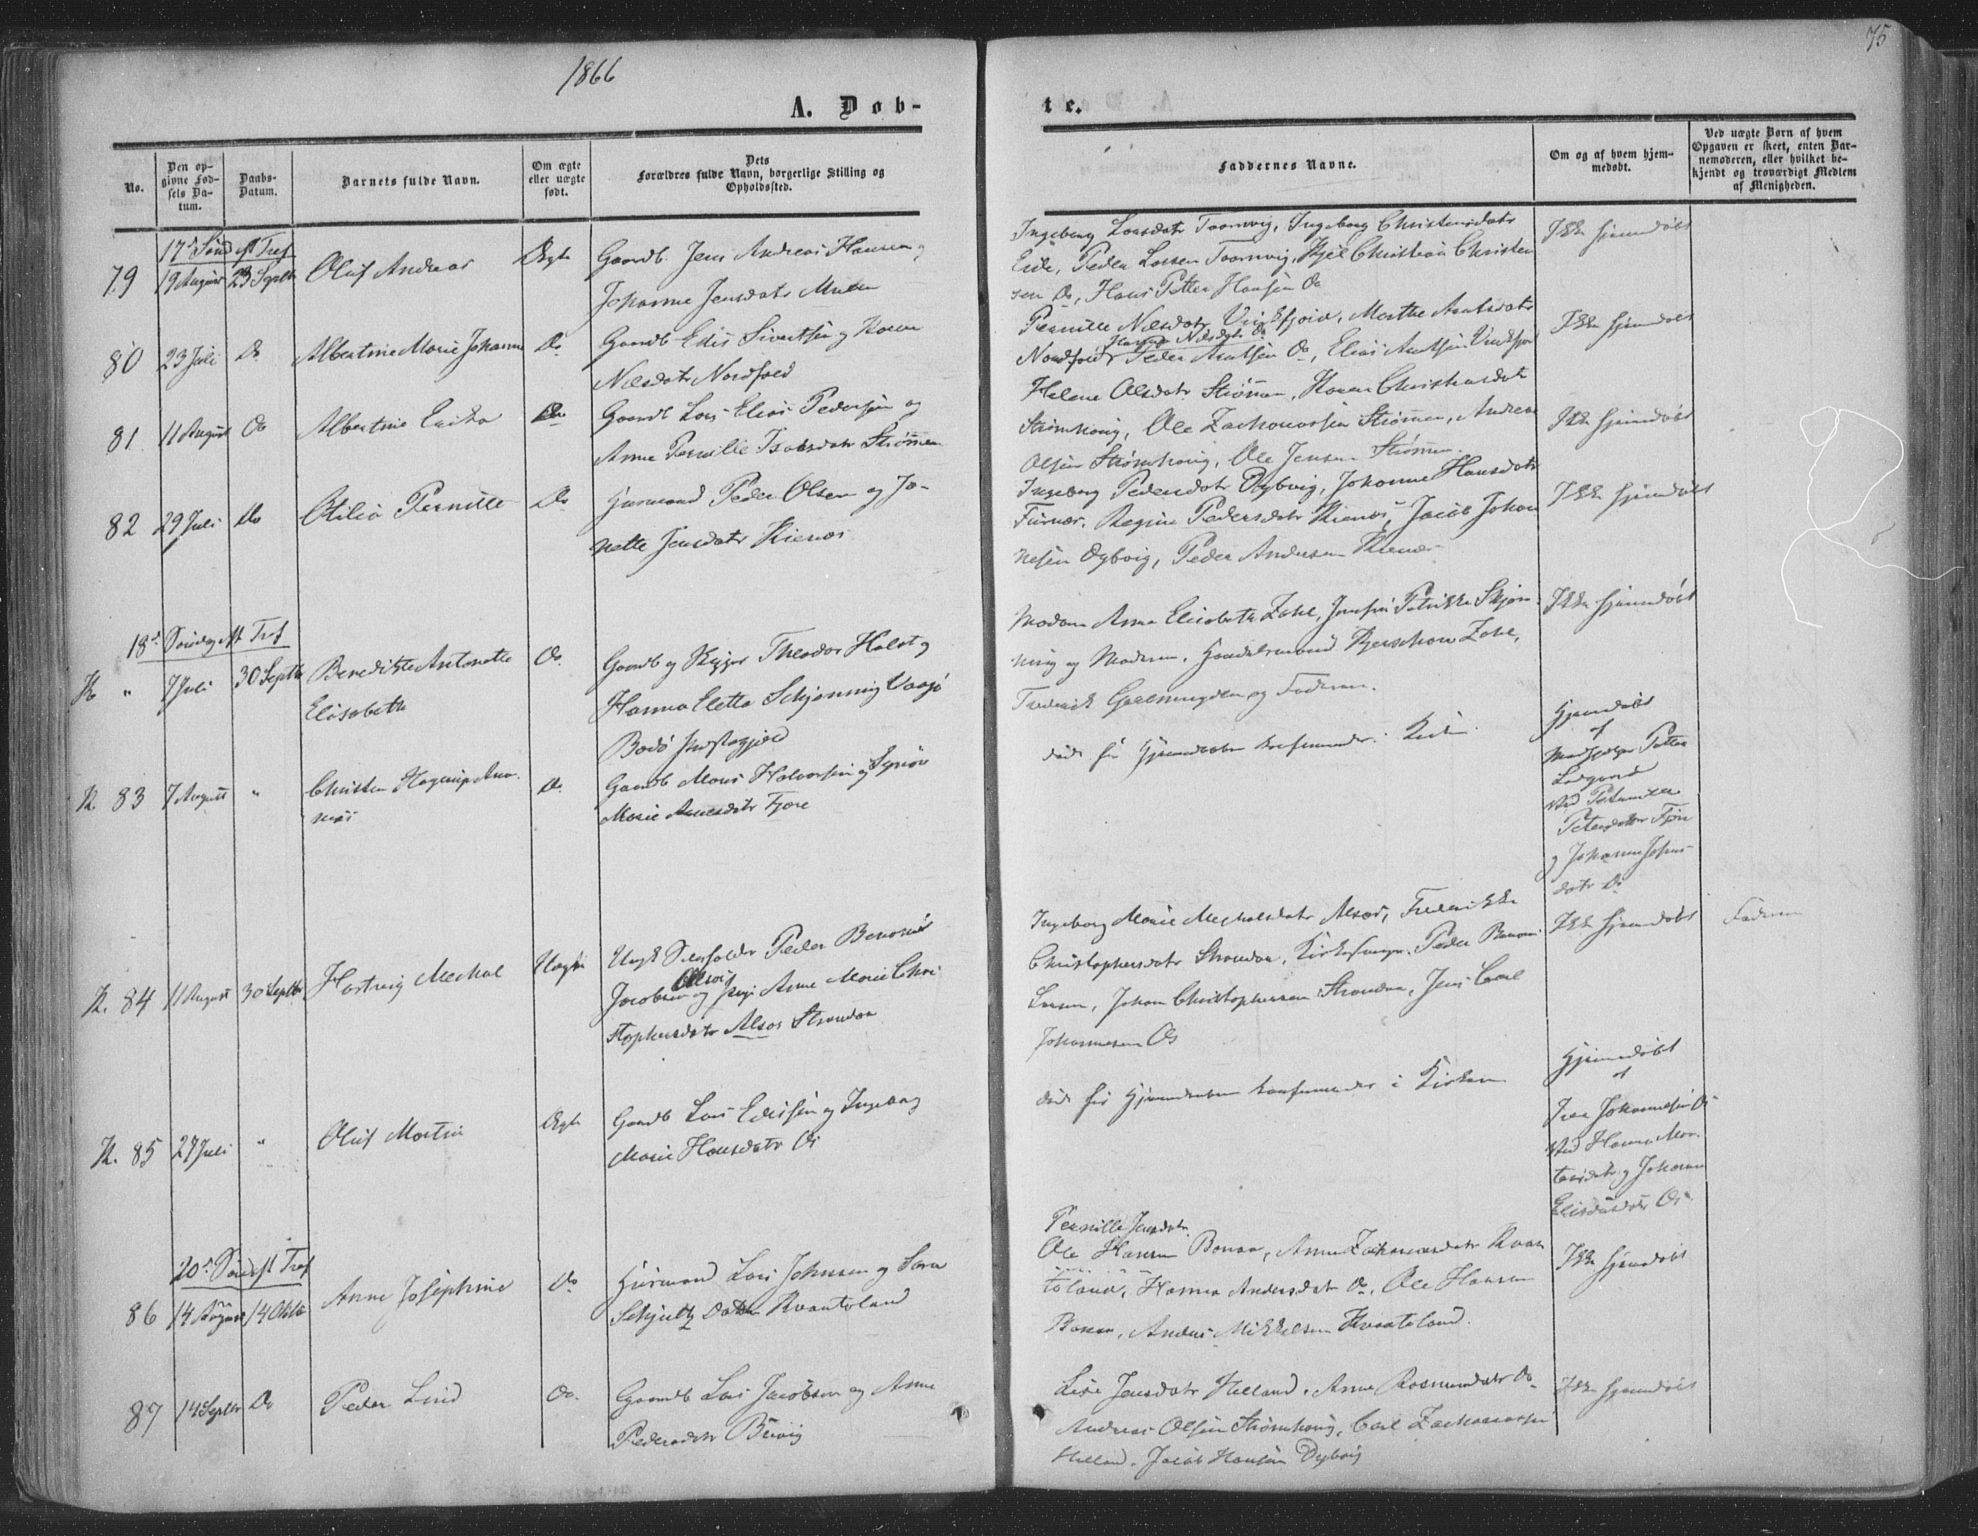 1866
75
A. Døb-
te.
No.
Den op-
givne Fød-
sels Da-
tum.
Daabs-
Datum.
Barnets fulde Navn.
Om ægte
eller uægte
født.
Dets
Forældres fulde Navn, borgerlige Stilling og
Opholdssted.
Faddernes Navne.
Om og af hvem hjem-
medøbt.
Ved uægte Børn af hvem
Opgaven er skeet, enten Bar-
nemoderen, eller hvilket be-
kjendt og troværdigt Medlem
af Menigheden.
17d Sønd eft Tref
79
19 August
23 Septbr
Oluf Andreas
Ægte
Gaardb. Jens Andreas Hansen og
Johanne Jensdatr
Ingeborg Larsdatr Toamvig, Ingeborg Christensdatr
Eide, Peder Larsen Toamvig, Kjel Christian Christen
sen Do, Hans Petter Hansen Do
Ikke hjemdøbt
80
23 Juli
Do
Albertine Marie Johanne
Do
Gaardb Edis Sivertsen og Karen
Nilsdatr Nordfjord
Pernille Nilsdatr, Marthe Arntsdatr
Nordfjord, Peder Arntsen Do, Elias Arntsen
Ikke hjemdøbt
81
11 August
Do
Albertine Erika
Do
Gaardb Lars Elias Pedersen og
Anne Pernille Isaksdatr Strømmen
Helene Olsdatr Strømmen, Karen Christensdatr
Strømhaug, Ole Zachariassen Strømmen, Andreas
Olsen Strømhaug, Ole Jensen Strømmen
Ikke hjemdøbt
82
29 Juli
Do
Otilie Pernille
Do
Huusmand Peder Olsen og Ja-
nette Jensdatr Kienæs
Ingeborg Pedersdatr Dybvig, Johanne Hansdatr
Furnæs, Regine Pedersdatr Kienæs, Jacob Johan
nesen Dybvig, Peder Andersen Kienæs
Ikke hjemdøbt
18d Søndag eft Tref
K
"
7 Juli
30 Septbr
Benedikte Antonette
Elisabeth
Do
Gaardb og Skipper Theodor Holst og
Hanna Eletta Schjønning Vaagø
Bodø Præstegjæld
Madam Anna Elisabeth Zahl, Jomfru Petrikke Skjøn
ning og Moderen, Handelsmand Zahl,
Frederik og Faderen.
Ikke hjemdøbt
K. 83
7 August
"
Christen Hagerup
Do
Gaardb Mons Halvorsen og
Marie Arnesdatr Fjære
døde før Hjemmedaaben i Kirken.
Hjemdøbt
af
Petter
ved
Petersdatter
og Johanne
datr Do
K. 84
11 August
30 Septbr
Hartvig Mechal
Uægte
Ungk Peder
Jacobsen og Pige Anne Marie Chri
stophersdatr Alsos Stranden
Ingeborg Marie Mechalsdatr Alsos, Frederikke
Christophersdatr Stranden, Kirkesanger Peder
Larsen, Johan Christophersen Stranden, Jens Carl
Johannesen Os
Ikke hjemdøbt
Faderen
K. 85
27 Juli
"
Oluf Martin
Ægte
Gaardb Lars Edissen og Ingeborg
Marie Hansdatr Os
døde før Hjemmedaaben i Kirken
Hjemdøbt
af
Iver Johannesen Os
ved Hanna Mor
tensdatr og Johanna
Elisdatr Os
20d Sønd eft Tref
86
14 August
14 Oktbr
Anne Josephine
Do
Huusmand Lars Johnsen og Sara
Schjultz Kvantoland
Pernille Jensdatr
Ole Hansen Bonaa, Anne Zachariasdatr Kvan
toland, Hanna Andersdatr Do, Ole Hansen
Bonaa, Anders Mikkelsen Kvantoland.
Ikke hjemdøbt
87
14 Septbr
Do
Peder Lind
Do.
Gaardb Lars Jacobsen og Anne
Pedersdatr
Lise Jensdatr Helland, Anne Rasmusdatr Do
Andreas Olsen Strømhaug, Carl Zachariassen
Helland, Jacob Hansen Dybvig
Ikke hjemdøbt